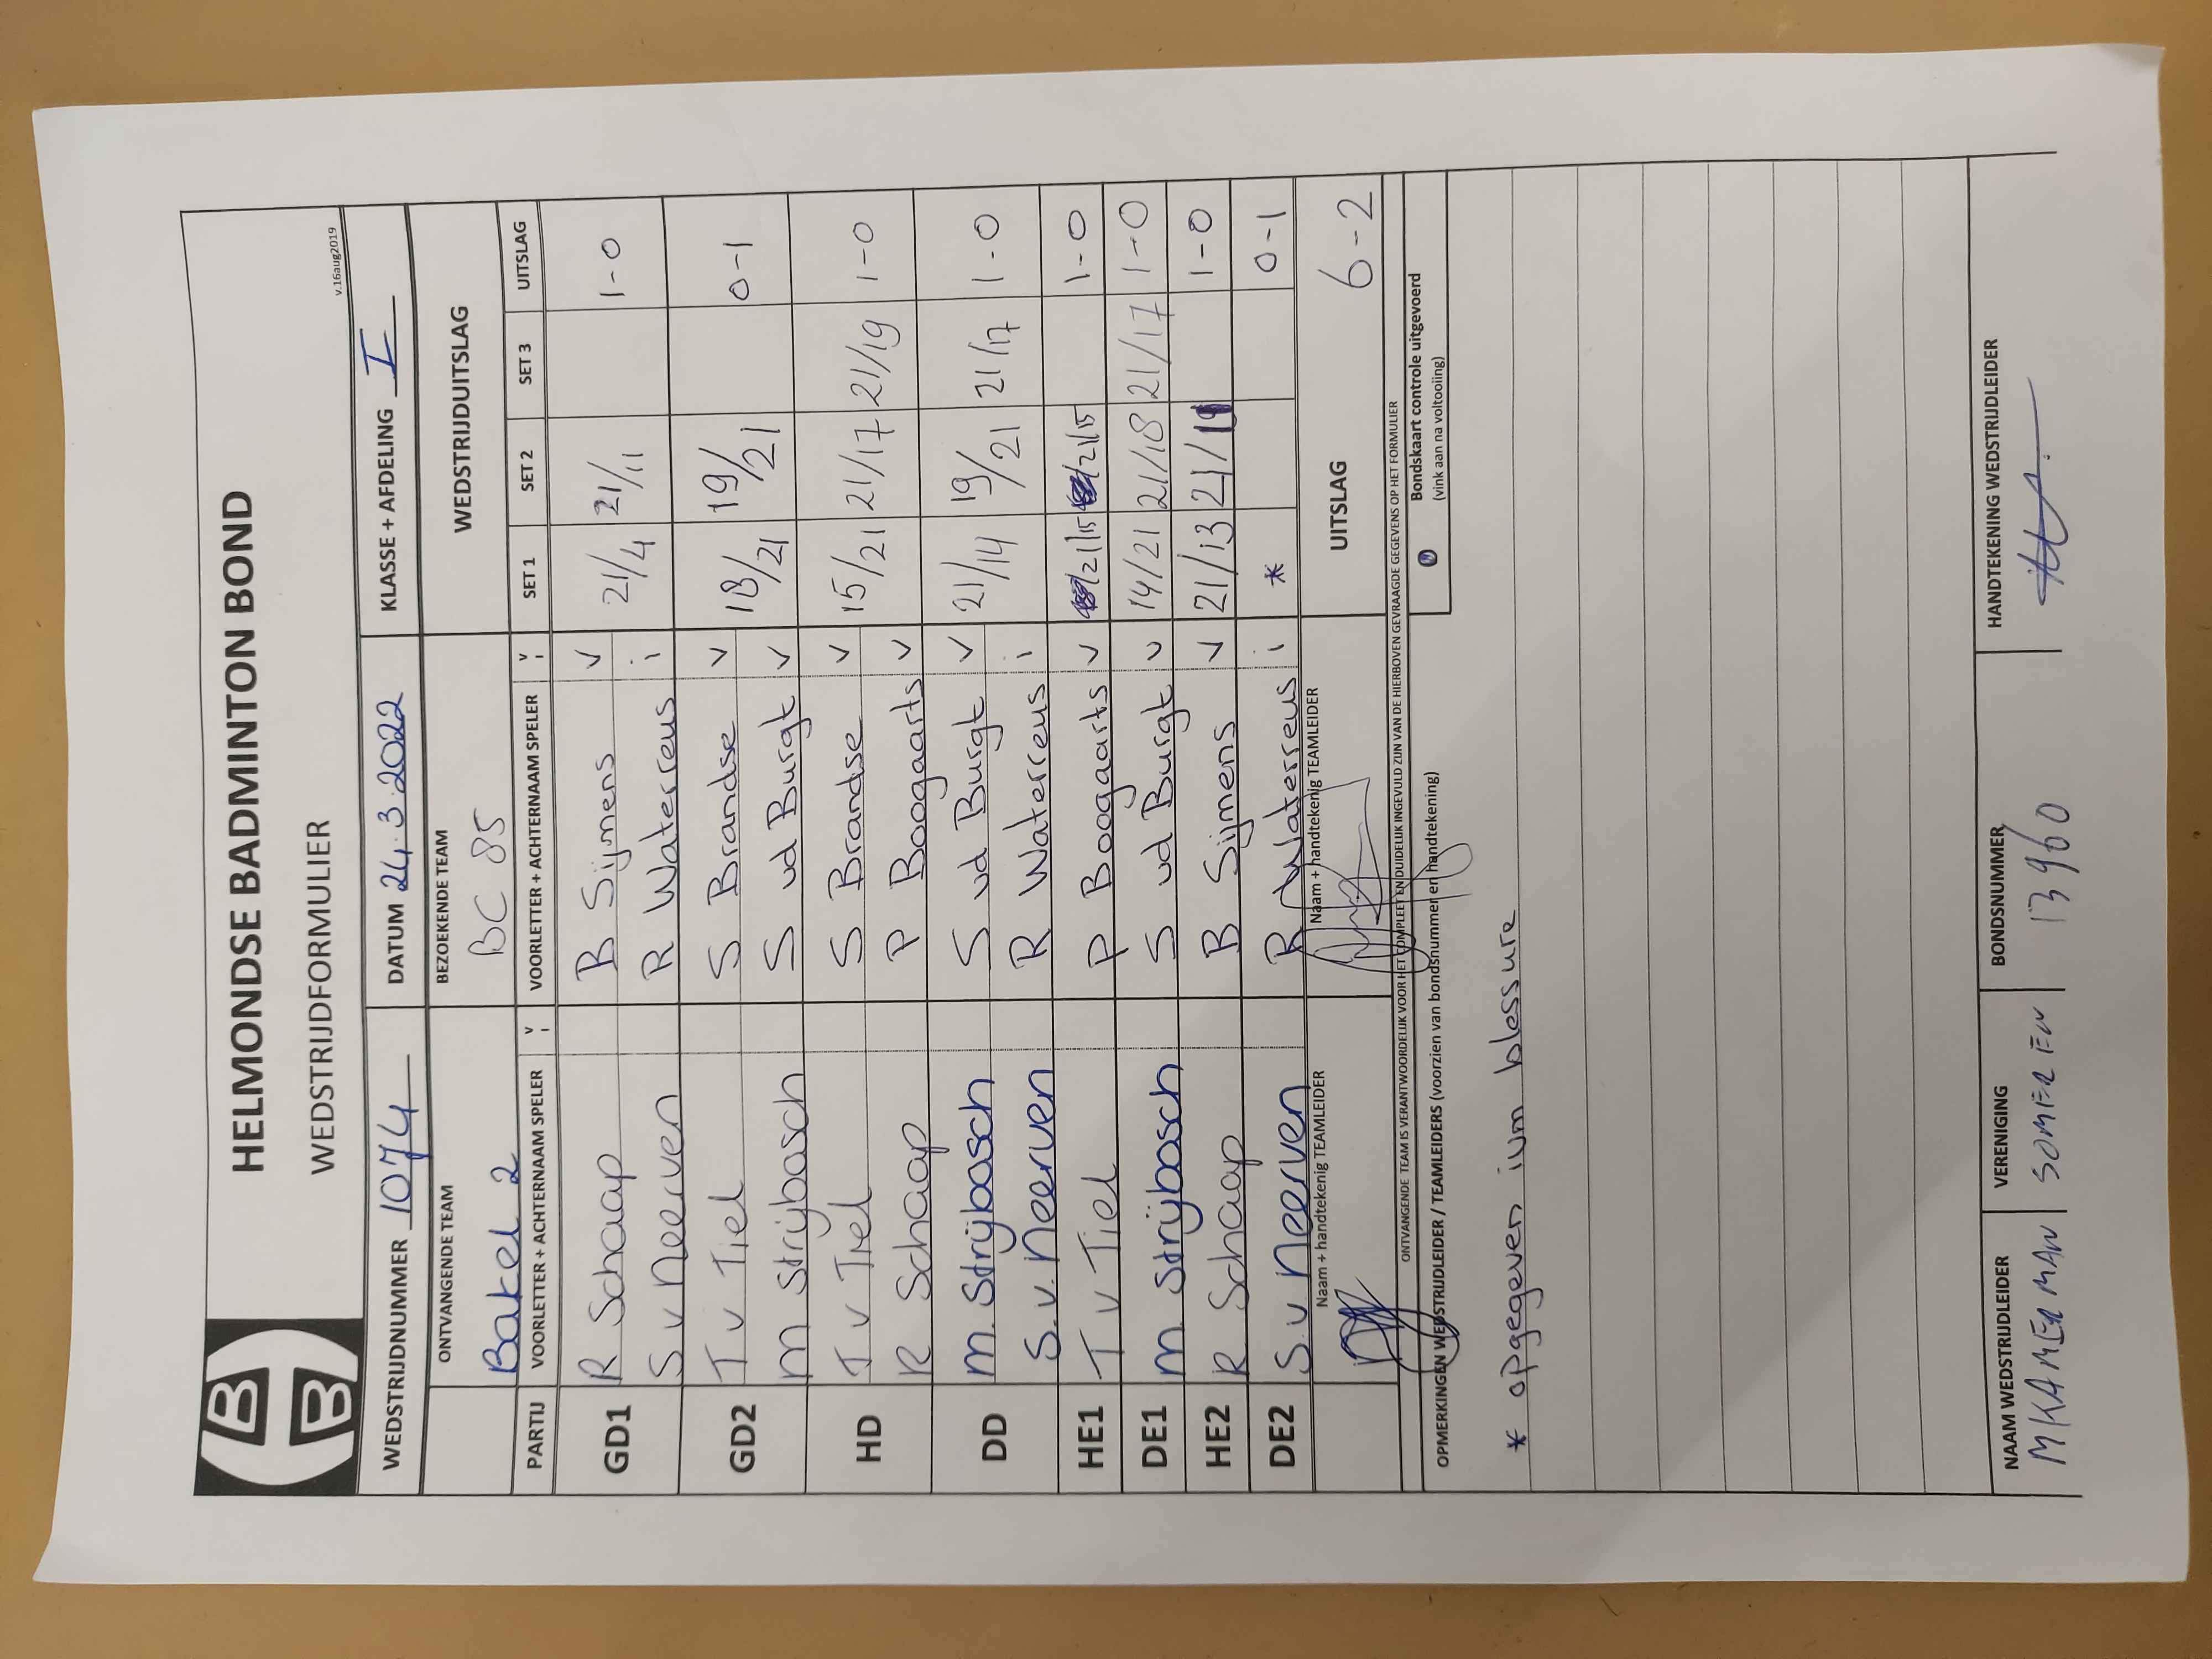 HELMONDSE BADMINTON BOND
WEDSTRIJDFORMULIER
v.16aug2019
WEDSTRIJDNUMMER 1074 DATUM 24.3.2022 KLASSE + AFDELING I
ONTVANGENDE TEAM BEZOEKENDE TEAM WEDSTRIJDUITSLAG
Bakel 2 BC 85
PARTIJ VOORLETTER + ACHTERNAAM SPELER V I VOORLETTER + ACHTERNAAM SPELER V I SET 1 SET 2 SET 3 UITSLAG
GD1 R Schaap B Sijmens v 21/4 21/11 1-0
S v Neerven R Waterreus i
GD2 T v Tiel S Brandse v 18/21 19/21 0-1
M Strijbosch S vd Burgt v
HD T v Tiel S Brandse v 15/21 21/17 21/19 1-0
R Schaap P Boogaarts v
DD M. Strijbosch S vd Burgt v 21/14 19/21 21/17 1-0
S. v. Neerven R Waterreus i
HE1 T v Tiel P Boogaarts v 21/15 21/15 1-0
DE1 M. Strijbosch S vd Burgt v 14/21 21/18 21/17 1-0
HE2 R Schaap B Sijmens v 21/13 21/ 1-0
DE2 S. v Neerven R Waterreus i * 0-1
Naam + handtekenig TEAMLEIDER Naam + handtekenig TEAMLEIDER UITSLAG 6-2
ONTVANGENDE TEAM IS VERANTWOORDELIJK VOOR HET COMPLEET EN DUIDELIJK INGEVULD ZIJN VAN DE HIERBOVEN GEVRAAGDE GEGEVENS OP HET FORMULIER
OPMERKINGEN WEDSTRIJDLEIDER / TEAMLEIDERS (voorzien van bondsnummer en handtekening)
Bondskaart controle uitgevoerd
(vink aan na voltooiing)
* opgegeven ivm blessure
NAAM WEDSTRIJDLEIDER VERENIGING BONDSNUMMER HANDTEKENING WEDSTRIJDLEIDER
M KAMERMAN SOMEREN 13960